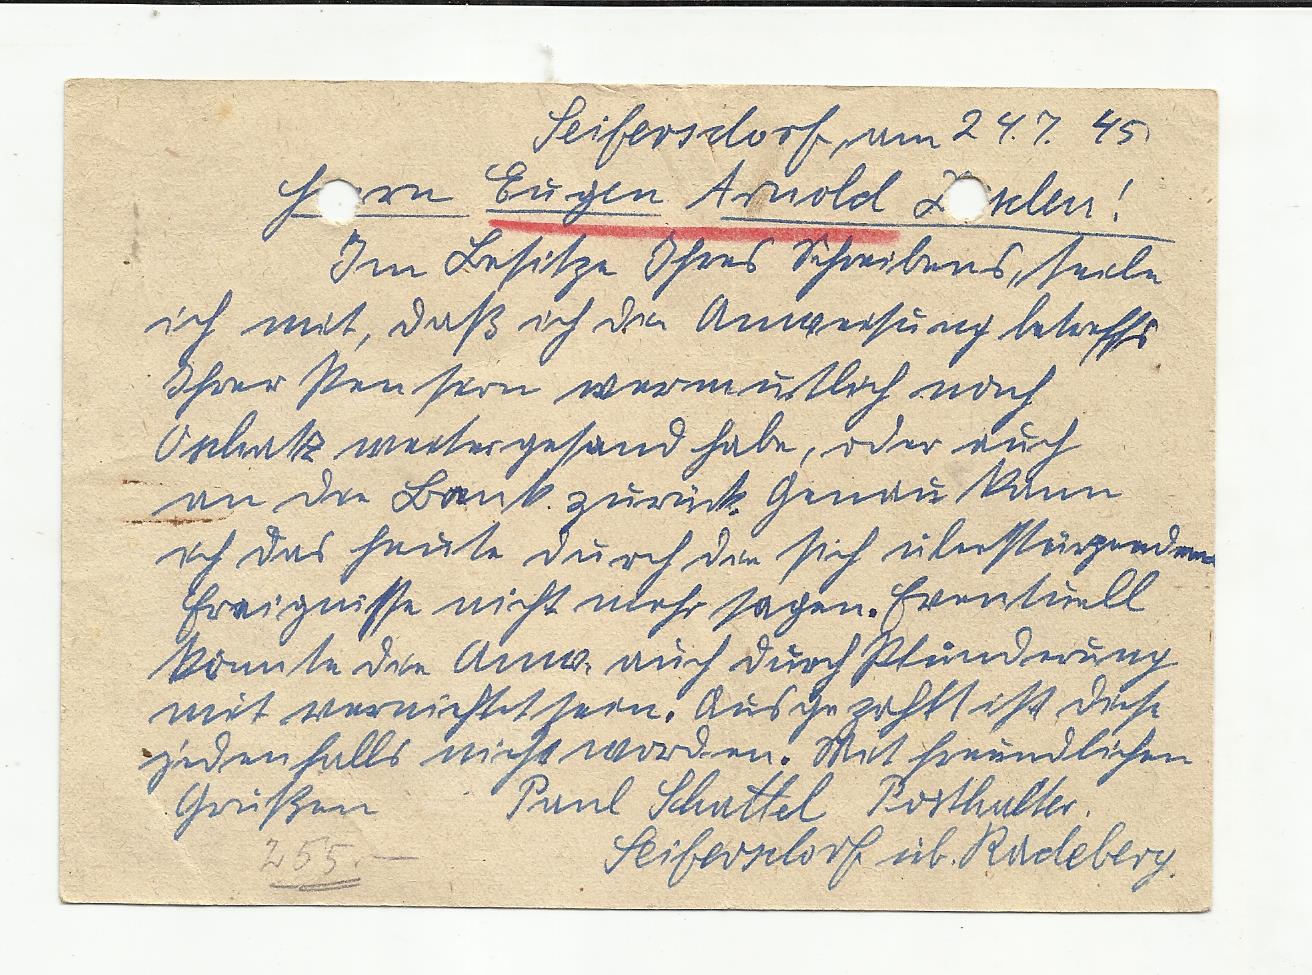 Seifersdorf, am 24.7. 45
Herrn Eugen Arnold
Im Besitze Ihres Schreibens, teile
ich mit, daß ich die Anweisung betreffs
Ihrer vermutlich nach
weitergesand habe, oder auch
an die Bank zurück. Genau kann
ich das heute durch die sich überstürzenden
Ereignisse nicht mehr sagen. Eventuell
könnte die Anw. auch durch Plünderung
mit vernichtet sein. Ausgezahlt ist diese
jedenfalls nicht worden. Mit freundlichen
Grüßen Paul Schattel Posthalter.
Seifersdorf üb. Radeberg.
255.—